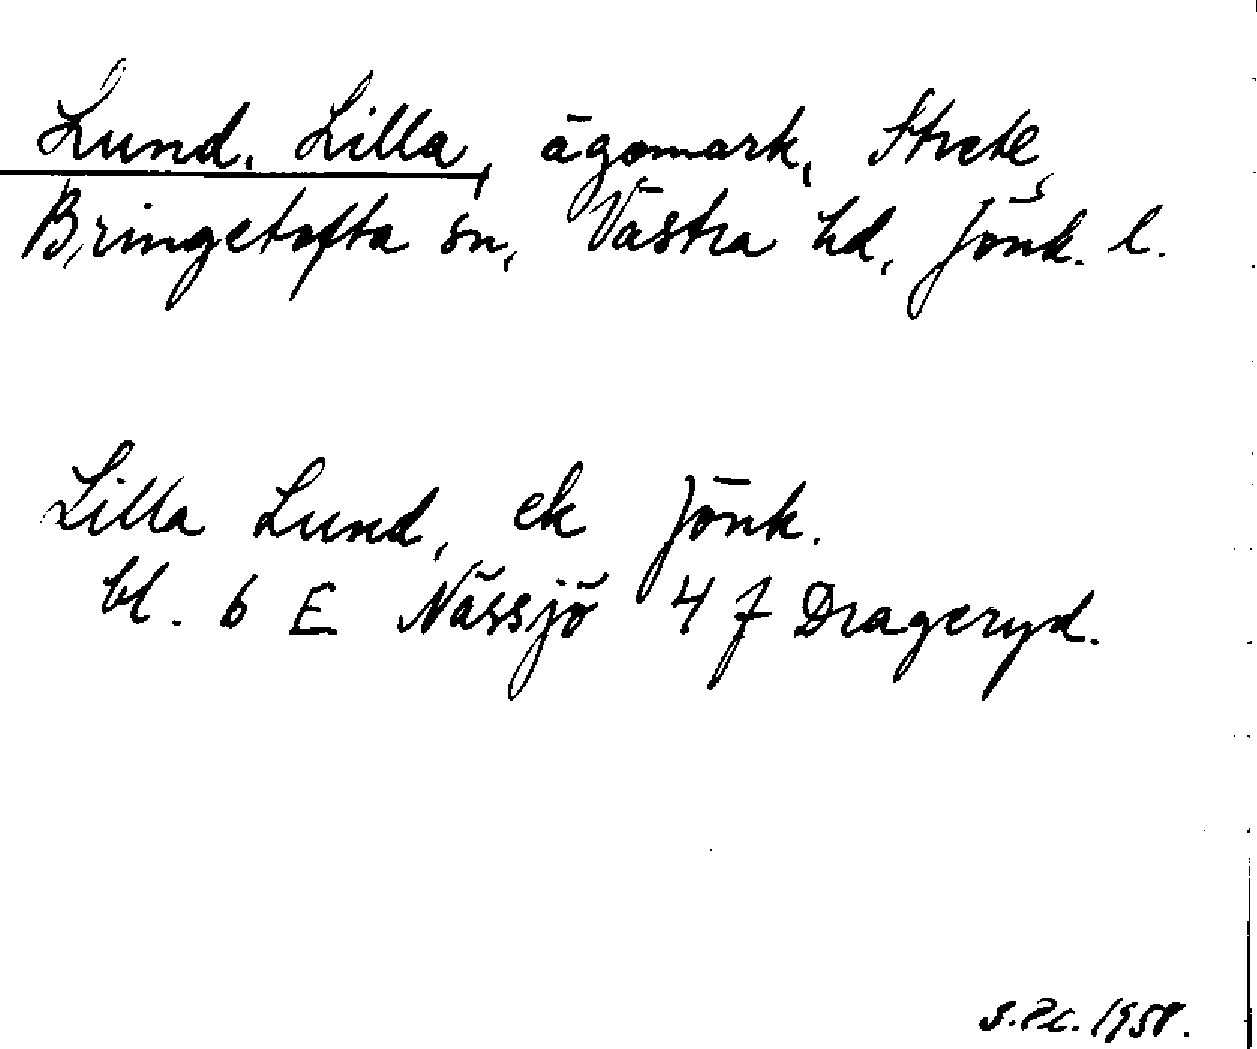 Lund, Lilla, ägomark, StretE,
Bringetofta sn, Västra hd, Jönk. l.
Lilla Lund, ek Jönk.
bl. 6 E Nässjö 4 f Drageryd.
1958.